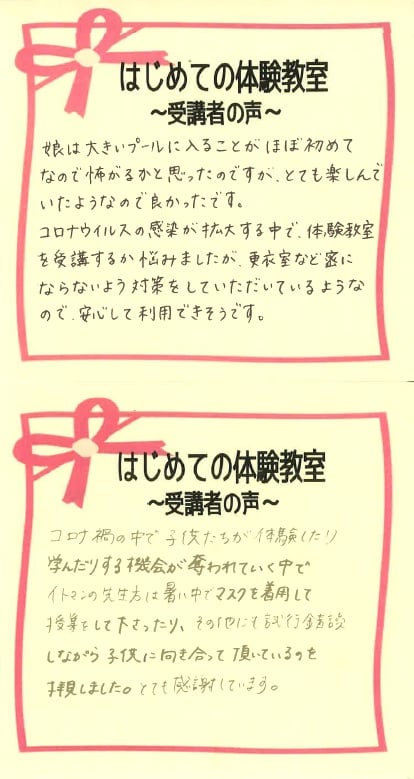 はじめての体験教室
～受講者の声～
娘は大きいプールに入ることがほぼ初めて
なので怖がるかと思ったのですが、とても楽しんで
いたようなので良かったです。
コロナウイルスの感染が拡大する中で、体験教室
を受講するか悩みましたが、更衣室など密に
ならないよう対策をしていただいているような
ので、安心して利用できそうです。
はじめての体験教室
～受講者の声～
コロナ禍の中で子供たちが体験したり
学んだりする機会が奪われていく中で
イトマンの先生方は暑い中でマスクを着用して
授業をして下さったり、その他にも試行錯誤
しながら子供に向き合って頂いているのを
拝見しました。とても感謝しています。